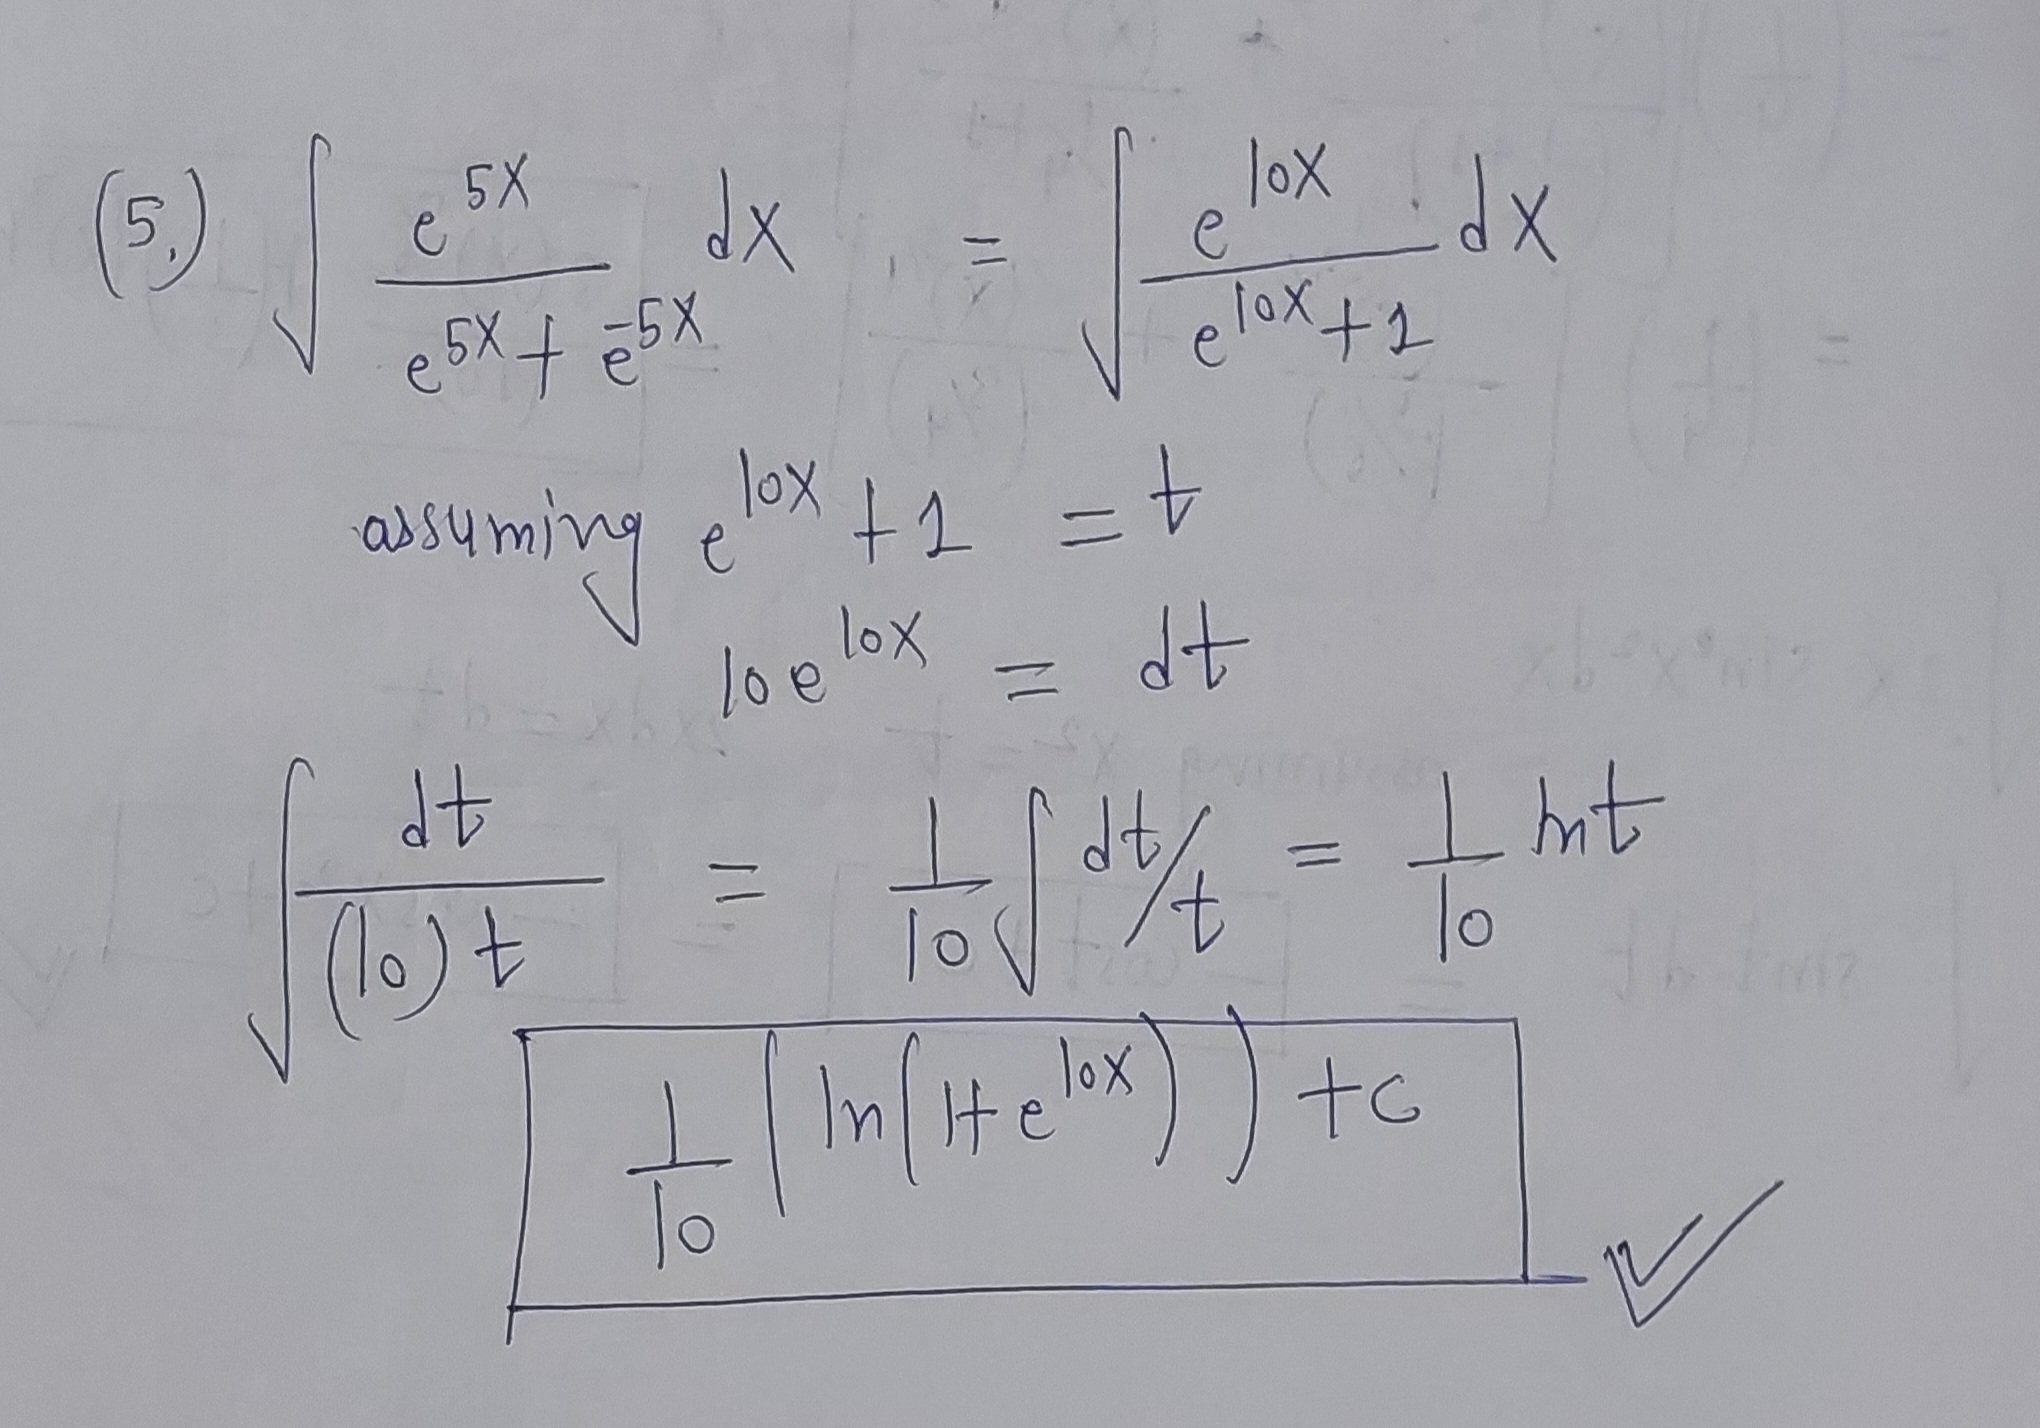 (5.) ∫ e^{5x} / (e^{5x} + e^{-5x}) dx = ∫ e^{10x} / (e^{10x} + 1) dx
assuming e^{10x} + 1 = t
10 e^{10x} = dt
∫ dt / ((10) t) = 1/10 ∫ dt/t = 1/10 ln t
1/10 (ln(1+e^{10x})) + c ✓